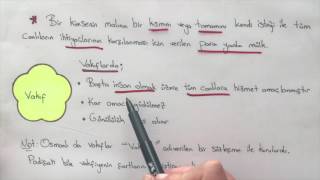 * Bir kimsenin malının bir kısmını veya tamamını kendi isteği ile tüm
canlıların ihtiyaçlarının karşılanması için verilen para yada mülk.
Vakıflarda;
Vakıf
• Başta insan olmak üzere tüm canlılara hizmet amaçlanmıştır
• Kar amacı güdülmez
• Gönüllülük alır
Not: Osmanlı da vakıflar "Va adı verilen bir sözleşme ile kurulurdu.
Padişah bile vakfiyenin şartların